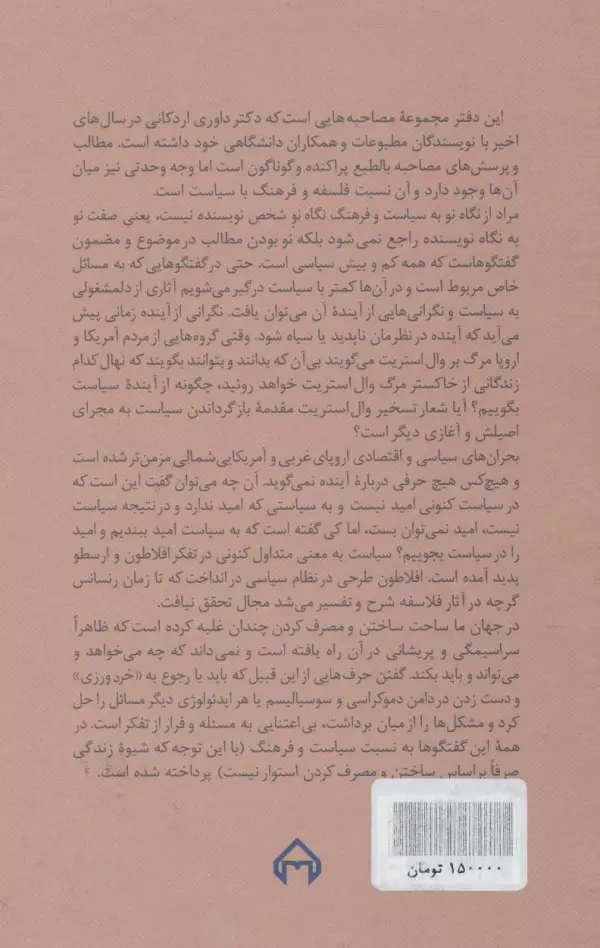 این دفتر مجموعهٔ مصاحبه‌هایی است که دکتر داوری اردکانی در سال‌های
اخیر با نویسندگان مطبوعات و همکاران دانشگاهی خود داشته است. مطالب
و پرسش‌های مصاحبه بالطبع پراکنده و گوناگون است اما وجه وحدتی نیز میان
آن‌ها وجود دارد و آن نسبت فلسفه و فرهنگ با سیاست است.
مراد از نگاه نو به سیاست و فرهنگ نگاه نوِ شخص نویسنده نیست، یعنی صفت نو
به نگاه نویسنده راجع نمی‌شود بلکه نو بودن مطالب در موضوع و مضمون
گفتگوهاست که همه کم و بیش سیاسی است. حتی در گفتگوهایی که به مسائل
خاص مربوط است و در آن‌ها کمتر با سیاست درگیر می‌شویم آثاری از دلمشغولی
به سیاست و نگرانی‌هایی از آیندهٔ آن می‌توان یافت. نگرانی از آینده زمانی پیش
می‌آید که آینده در نظرمان ناپدید یا سیاه شود. وقتی گروه‌هایی از مردم آمریکا و
اروپا مرگ بر وال‌استریت می‌گویند بی‌آن که بدانند و بتوانند بگویند که نهال کدام
زندگانی از خاکستر مرگ وال‌استریت خواهد روئید، چگونه از آیندهٔ سیاست
بگوییم؟ آیا شعار تسخیر وال‌استریت مقدمهٔ بازگرداندن سیاست به مجرای
اصیلش و آغازی دیگر است؟
بحران‌های سیاسی و اقتصادی اروپای غربی و آمریکایی‌شمالی مزمن‌تر شده است
و هیچ‌کس هیچ حرفی دربارهٔ آینده نمی‌گوید. آن چه می‌توان گفت این است که
در سیاست کنونی امید نیست و به سیاستی که امید ندارد و در نتیجه سیاست
نیست، امید نمی‌توان بست، اما کی گفته است که به سیاست امید ببندیم و امید
را در سیاست بجوییم؟ سیاست به معنی متداول کنونی در تفکر افلاطون و ارسطو
پدید آمده است. افلاطون طرحی در نظام سیاسی در انداخت که تا زمان رنسانس
گرچه در آثار فلاسفه شرح و تفسیر می‌شد مجال تحقق نیافت.
در جهان ما ساحت ساختن و مصرف کردن چندان غلبه کرده است که ظاهراً
سراسیمگی و پریشانی در آن راه یافته است و نمی‌داند که چه می‌خواهد و
می‌تواند و باید بکند. گفتن حرف‌هایی از این قبیل که باید با رجوع به «خردورزی»
و دست زدن در دامن دموکراسی و سوسیالیسم یا هر ایدئولوژی دیگر مسائل را حل
کرد و مشکل‌ها را از میان برداشت، بی‌اعتنایی به مسئله و فرار از تفکر است. در
همهٔ این گفتگوها به نسبت سیاست و فرهنگ (با این توجه که شیوهٔ زندگی
صرفاً براساس ساختن و مصرف کردن استوار نیست) پرداخته شده است.
۱۵۰۰۰۰ تومان